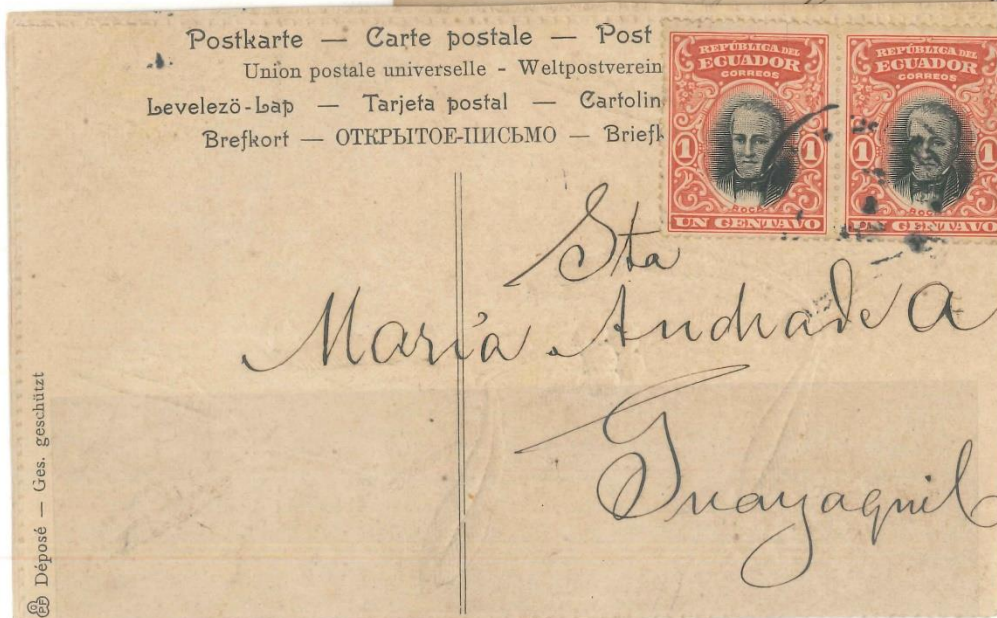 Postkarte — Carte postale — Post
Union postale universelle - Weltpostverein
Levelező-Lap — Tarjeta postal — Cartolin
Brefkort — ОТКРЫТОЕ-ПИСЬМО — Briefk
REPÚBLICA DEL
ECUADOR
CORREOS
1 1
ROCA
UN CENTAVO
REPÚBLICA DEL
ECUADOR
CORREOS
1 1
ROCA
UN CENTAVO
Sta
María Andrade A
Guayaquil
Déposé — Ges. geschützt